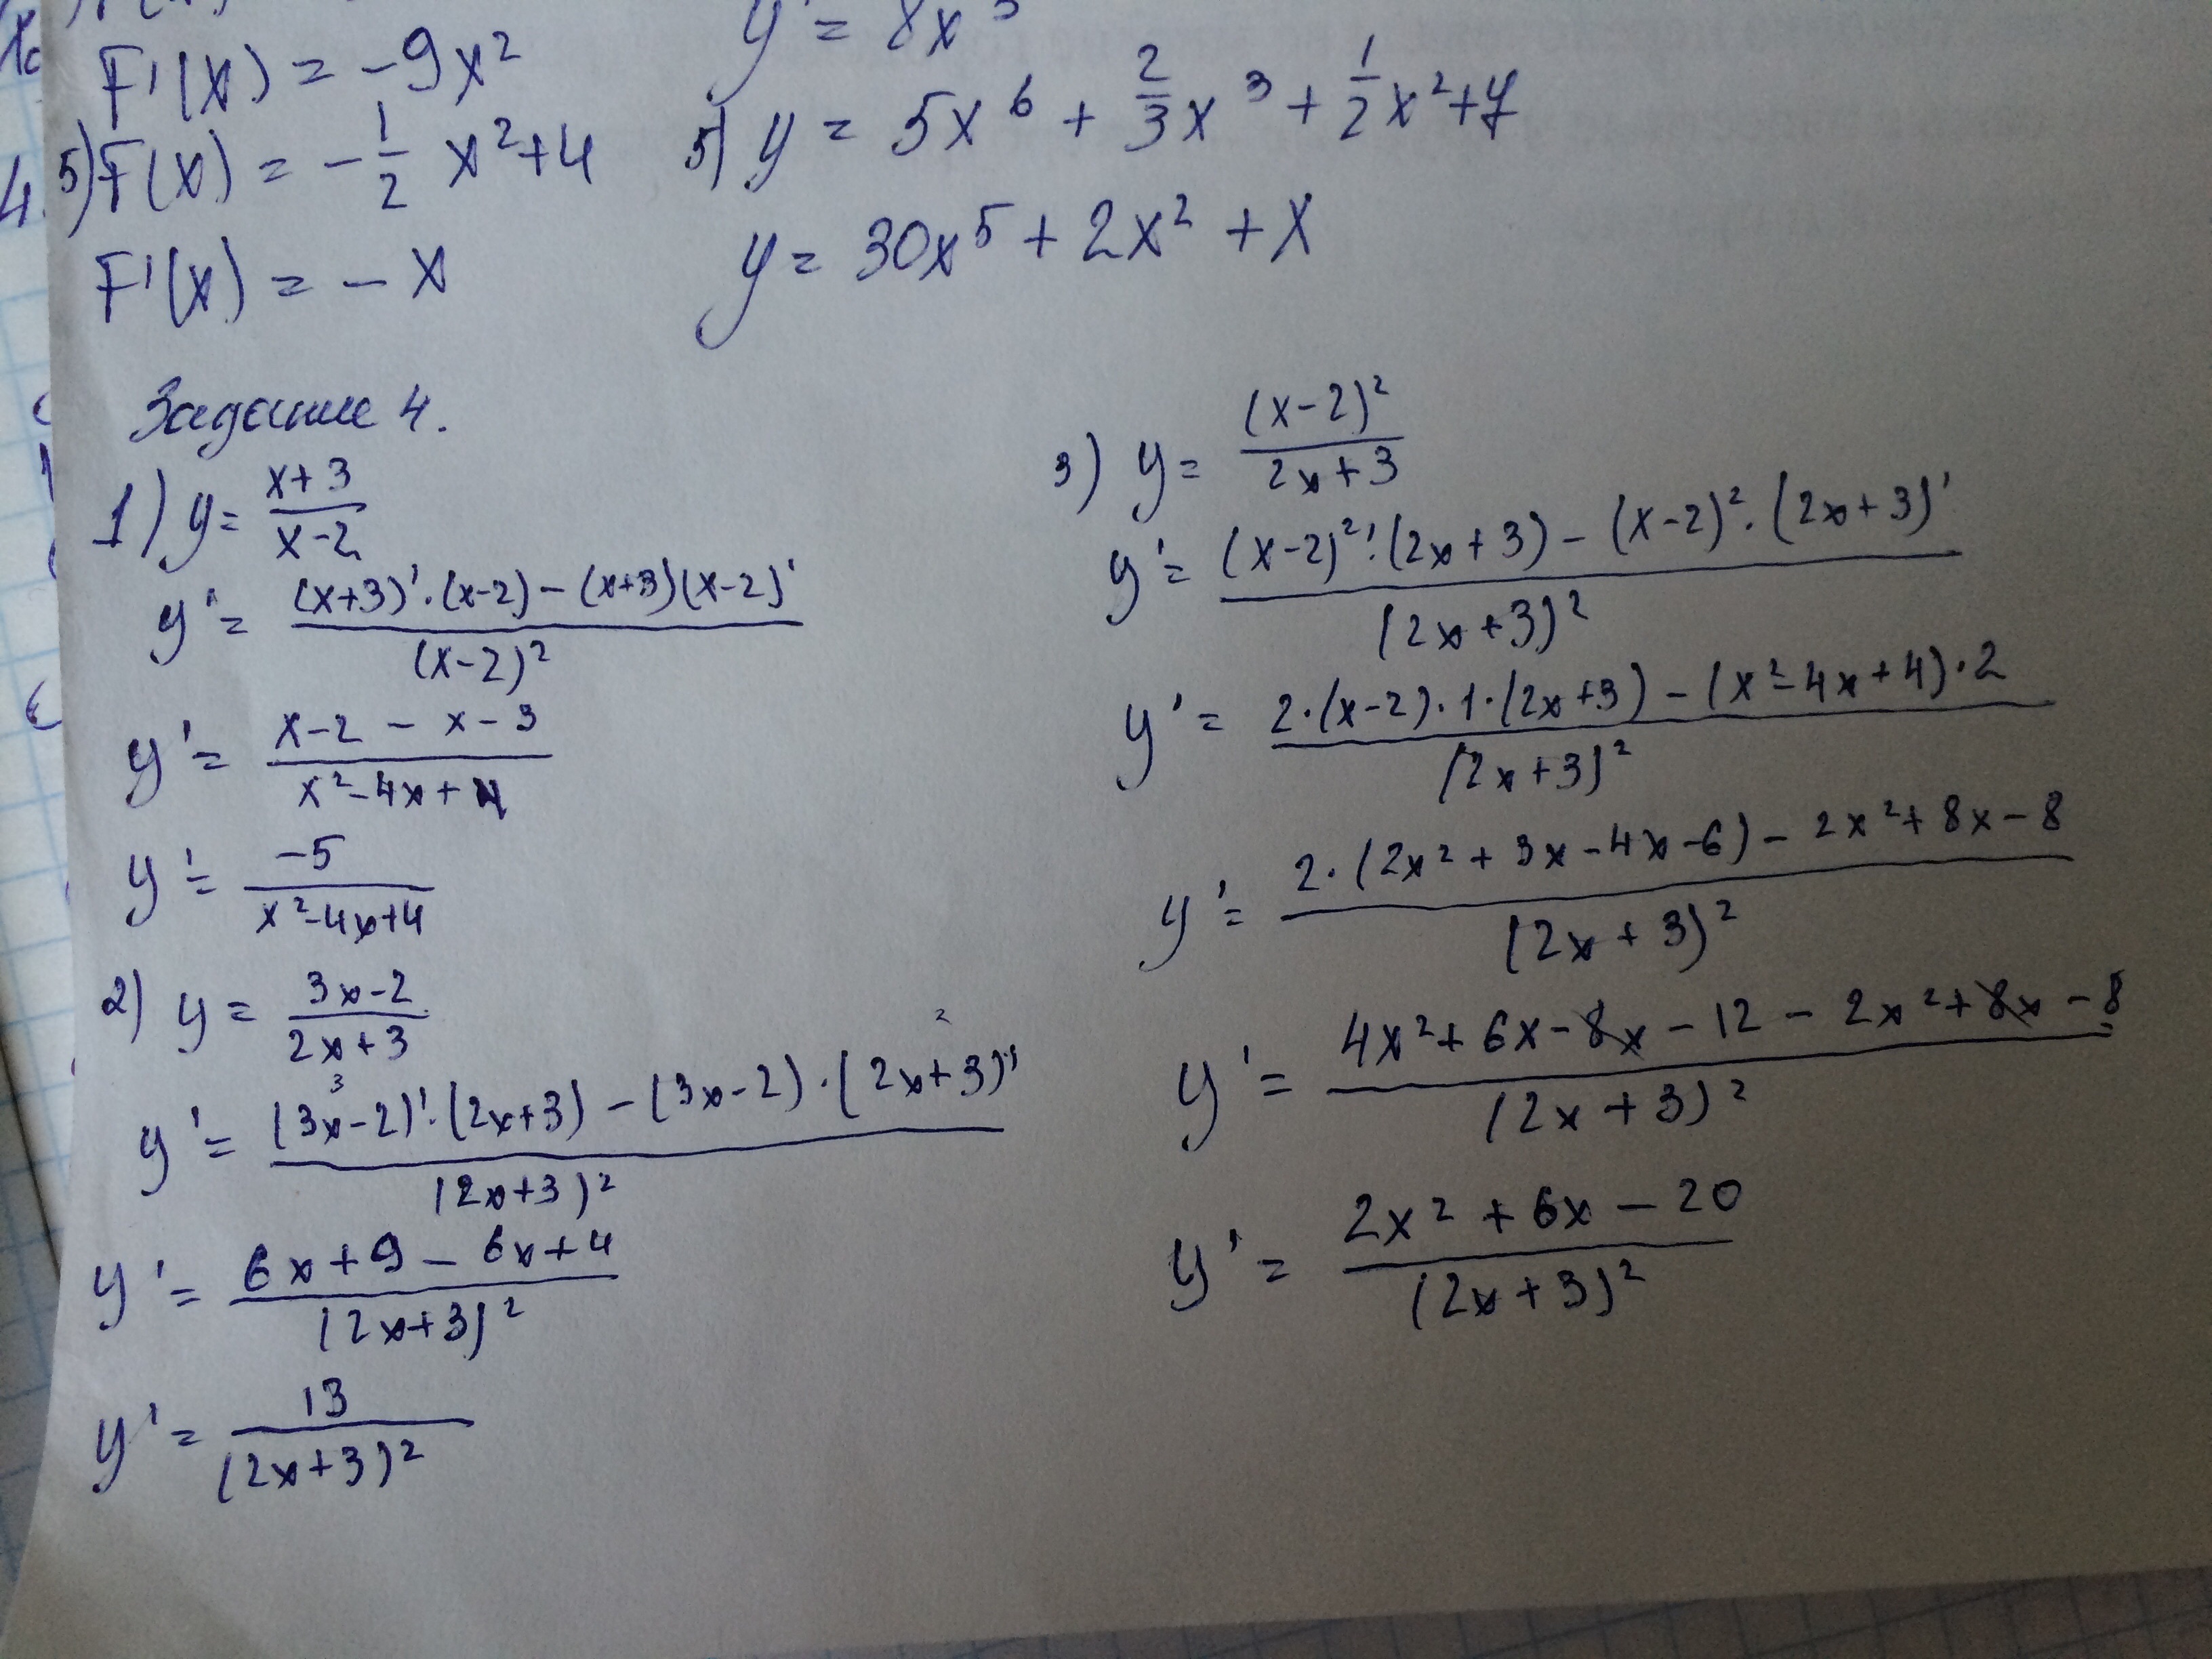 F'(x) = -9x²
5) F(x) = -1/2 x²+4
F'(x) = -x
y' = 8x³
5) y = 5x⁶ + 2/3x³ + 1/2x²+7
y = 30x⁵ + 2x² + x
Задание 4.
1) y = (x+3)/(x-2)
y' = ((x+3)'·(x-2) - (x+3)(x-2)')/(x-2)²
y' = (x-2 - x-3)/(x²-4x+4)
y' = -5/(x²-4x+4)
2) y = (3x-2)/(2x+3)
y' = ((3x-2)'·(2x+3) - (3x-2)·(2x+3)')/(2x+3)²
y' = (6x+9 - 6x+4)/(2x+3)²
y' = 13/(2x+3)²
3) y = (x-2)²/(2x+3)
y' = ((x-2)²'·(2x+3) - (x-2)²·(2x+3)')/(2x+3)²
y' = (2·(x-2)·1·(2x+3) - (x²-4x+4)·2)/(2x+3)²
y' = (2·(2x²+3x-4x-6) - 2x²+8x-8)/(2x+3)²
y' = (4x²+6x-8x-12 - 2x²+8x-8)/(2x+3)²
y' = (2x²+6x-20)/(2x+3)²